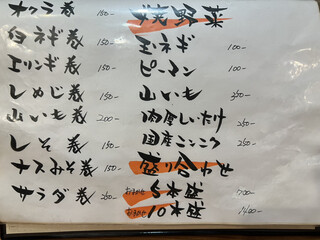 オクラ巻 150-
白ネギ巻 150-
エリンギ巻 150-
しめじ巻 150-
山いも巻 200-
しそ巻 150-
ナスみそ巻 150-
サラダ巻 250-
焼野菜
玉ネギ 100-
ピーマン 100-
山いも 350-
肉厚しいたけ 250-
国産にんにく 250-
盛り合わせ
おまかせ 5本盛 700-
おまかせ 10本盛 1400-